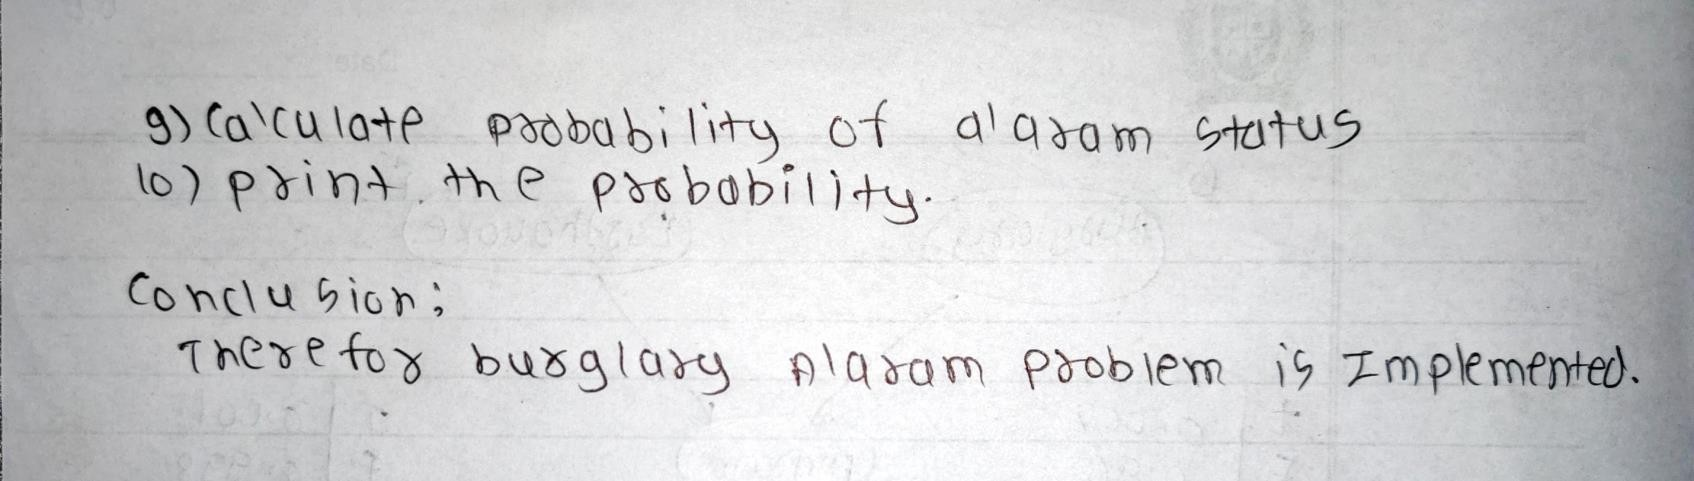 9) Calculate probability of alaram status
10) print the probability.
Conclusion;
Therefor burglary Alaram problem is Implemented.